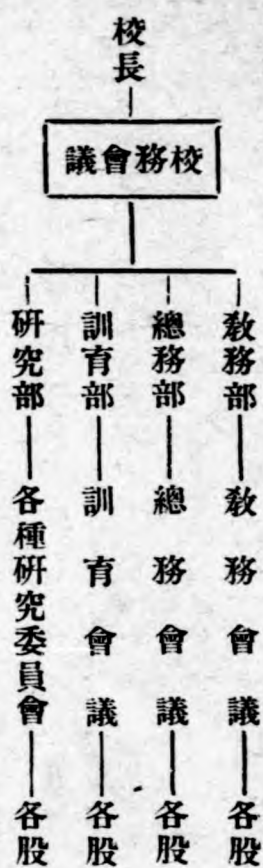 校長
校務會議
教務部 教務會議 各股
總務部 總務會議 各股
訓育部 訓育會議 各股
研究部 各種研究委員會 各股